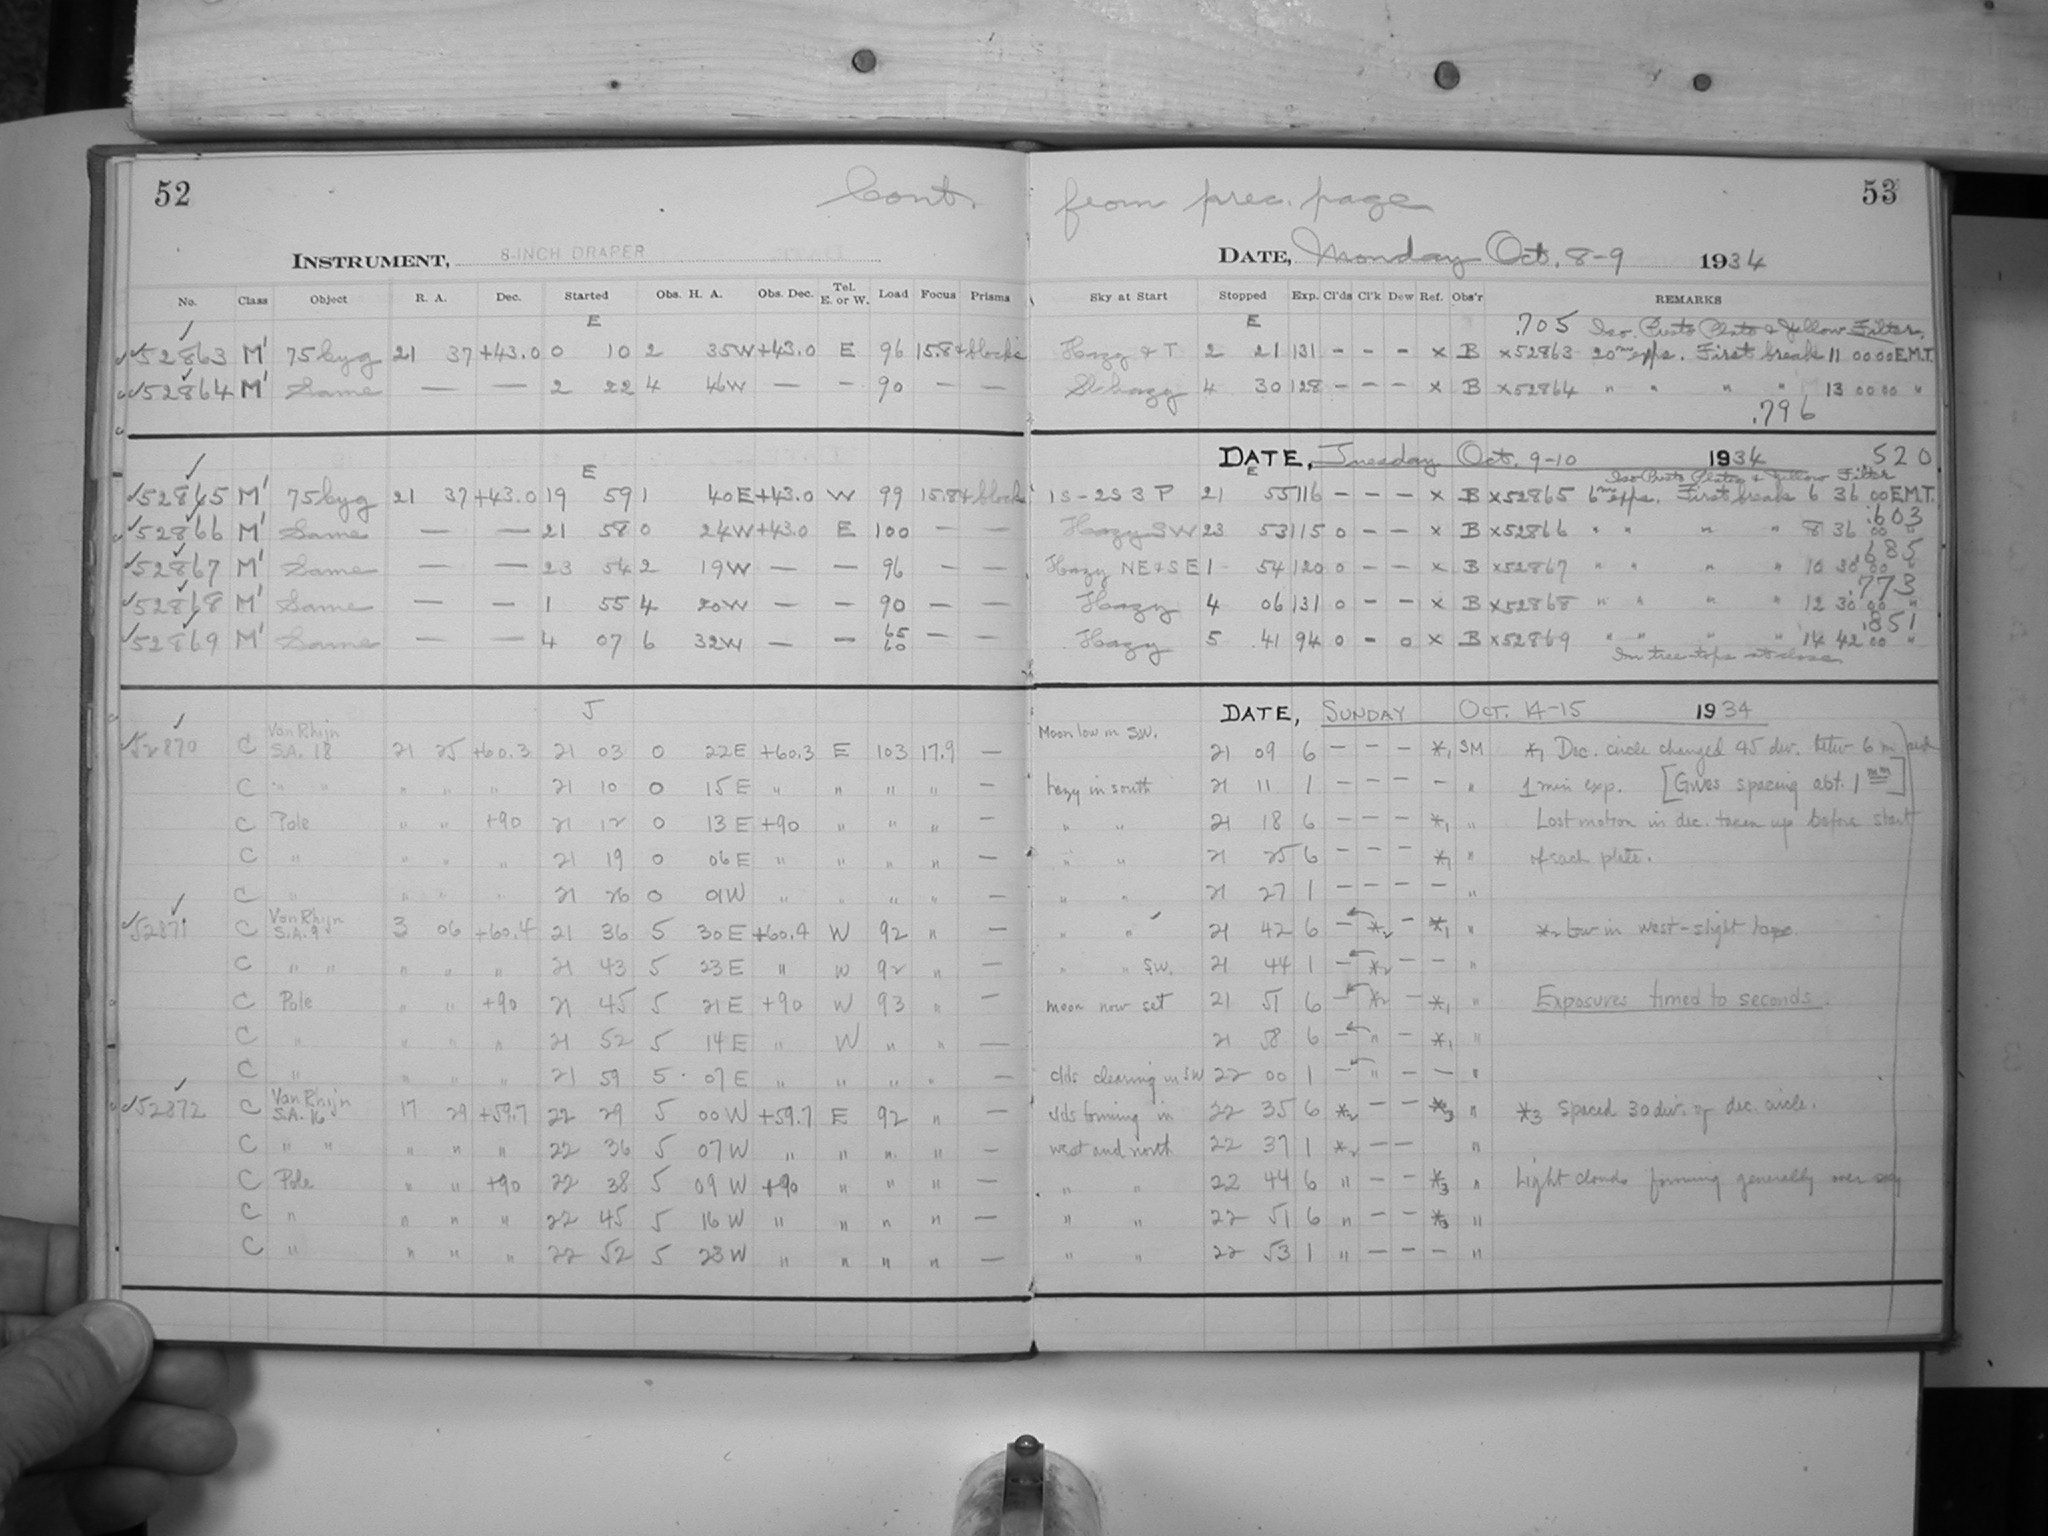 52 Cont. from prec. page 53
INSTRUMENT, 8-INCH DRAPER DATE, Monday Oct. 8-9 1934
No. Class Object R. A. Dec. Started Obs. H. A. Obs. Dec. Tel. E. or W. Load Focus Prisms Sky at Start Stopped Exp. Cl'ds Cl'k Dew Ref. Obs'r REMARKS
E E .705 Iso. Presto Plato & Yellow Filter.
✓52863 M' 75 Cyg 21 37 +43.0 0 10 2 35W +43.0 E 96 15.8+ blocks Hazy & T 2 21 131 - - - x B x52863 20m exps. First break 11 00 00 E.M.T.
✓52864 M' Same — — 2 22 4 46W — - 90 — — Sl. hazy 4 30 128 - - - x B x52864 " " " " 13 00 00 "
.796
DATE, Tuesday Oct. 9-10 1934 .520
E E Iso Presto Plates & Yellow Filter
✓52865 M' 75 Cyg 21 37 +43.0 19 59 1 40E +43.0 W 99 15.8+ blocks 1S-2S 3 P 21 55 116 - - - x B x52865 6m exps. First breaks 6 36 00 E.M.T.
.603
✓52866 M' Same — — 21 58 0 24W +43.0 E 100 — — Hazy SW 23 53 115 0 - - x B x52866 " " " " 8 36 00 "
.685
✓52867 M' Same — — 23 54 2 19W — — 96 — — Hazy NE & SE 1 54 120 0 - - x B x52867 " " " " 10 30 00 "
.773
✓52868 M' Same — — 1 55 4 20W — — 90 — — Hazy 4 06 131 0 - - x B x52868 " " " " 12 30 00 "
.851
✓52869 M' Same — — 4 07 6 32W — — 65 60 — — Hazy 5 41 94 0 - 0 x B x52869 " " " " 14 42 00 "
In tree tops at close
J DATE, SUNDAY OCT. 14-15 1934
✓52870 C Van Rhijn S.A. 18 21 25 +60.3 21 03 0 22E +60.3 E 103 17.9 — Moon low in S.W. 21 09 6 - - - *1 SM *1 Dec. circle changed 45 div. betw 6 m and
C " " " " " 21 10 0 15E " " " " — hazy in south 21 11 1 - - - - " 1 min exp. [Gives spacing abt. 1 mm]
C Pole " " +90 21 12 0 13E +90 " " " — " " 21 18 6 - - - *1 " Lost motion in dec. taken up before start
C " " " " 21 19 0 06E " " " " — " " 21 25 6 - - - *1 " of each plate.
C " " " " 21 26 0 01W " " " " — " " 21 27 1 - - - - "
✓52871 C Van Rhijn S.A. 9 3 06 +60.4 21 36 5 30E +60.4 W 92 " — " " 21 42 6 - *2 - *1 " *2 Low in west - slight haze.
C " " " " " 21 43 5 23E " W 92 " — " " SW. 21 44 1 - *2 - - "
C Pole " " +90 21 45 5 21E +90 W 93 " — moon now set 21 51 6 - *2 - *1 " Exposures timed to seconds.
C " " " " 21 52 5 14E " W " " — 21 58 6 - " - *1 "
C " " " " 21 59 5 07E " " " " — clds clearing in SW 22 00 1 - " - - "
✓52872 C Van Rhijn S.A. 16 17 29 +59.7 22 29 5 00W +59.7 E 92 " — clds forming in 22 35 6 *2 - - *3 " *3 Spaced 30 div. of dec. circle.
C " " " " " 22 36 5 07W " " " " — west and north 22 37 1 *2 - - "
C Pole " " +90 22 38 5 09W +90 " " " — " " 22 44 6 " - - *3 " Light clouds forming generally over sky
C " " " " 22 45 5 16W " " " " — " " 22 51 6 " - - *3 "
C " " " " 22 52 5 23W " " " " — " " 22 53 1 " - - - "